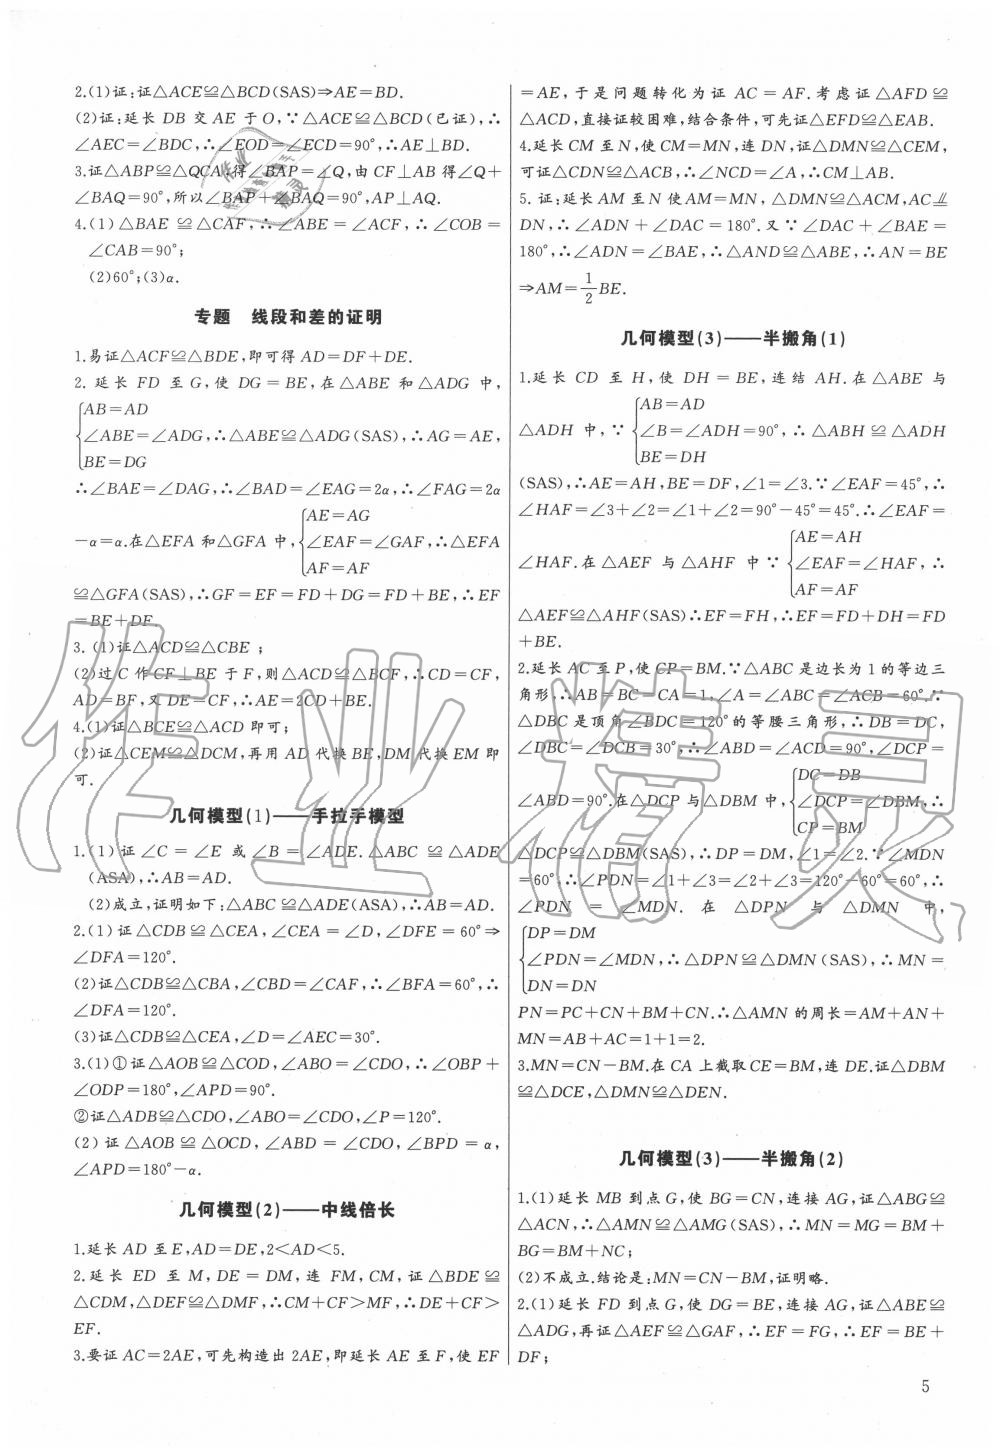 2.(1)证:证△ACE≌△BCD(SAS)⇒AE=BD.
(2)证:延长 DB 交 AE 于 O,∵△ACE≌△BCD(已证),∴
∠AEC=∠BDC,∴∠EOD=∠ECD=90°,∴AE⊥BD.
3.证△ABP≌△QCA,得∠BAP=∠Q,由 CF⊥AB 得∠Q+
∠BAQ=90°,所以∠BAP+∠BAQ=90°,AP⊥AQ.
4.(1)△BAE ≌△CAF,∴∠ABE=∠ACF,∴∠COB=
∠CAB=90°;
(2)60°;(3)α.
专题 线段和差的证明
1.易证△ACF≌△BDE,即可得 AD=DF+DE.
2. 延长 FD 至 G,使 DG=BE,在△ABE 和△ADG 中,
{AB=AD
∠ABE=∠ADG,∴△ABE≌△ADG(SAS),∴AG=AE,
BE=DG
∴∠BAE=∠DAG,∴∠BAD=∠EAG=2α,∴∠FAG=2α
{AE=AG
-α=α.在△EFA 和△GFA 中, ∠EAF=∠GAF,∴△EFA
AF=AF
≌△GFA(SAS),∴GF=EF=FD+DG=FD+BE,∴EF
=BE+DF.
3. (1)证△ACD≌△CBE;
(2)过 C 作 CF⊥BE 于 F,则△ACD≌△BCF,∴CD=CF,
AD=BF,又 DE=CF,∴AE=2CD+BE.
4.(1)证△BCE≌△ACD 即可;
(2)证△CEM≌△DCM,再用 AD 代换 BE,DM 代换 EM 即
可.
几何模型(1)——手拉手模型
1.(1)证∠C=∠E 或∠B=∠ADE.△ABC ≌△ADE
(ASA),∴AB=AD.
(2)成立,证明如下:△ABC≌△ADE(ASA),∴AB=AD.
2.(1)证△CDB≌△CEA,∠CEA=∠D,∠DFE=60°⇒
∠DFA=120°.
(2)证△CDB≌△CBA,∠CBD=∠CAF,∴∠BFA=60°,∴
∠DFA=120°.
(3)证△CDB≌△CEA,∠D=∠AEC=30°.
3.(1)①证△AOB≌△COD,∠ABO=∠CDO,∴∠OBP+
∠ODP=180°,∠APD=90°.
②证△ADB≌△CDO,∠ABO=∠CDO,∠P=120°.
(2)证△AOB≌△OCD,∠ABD=∠CDO,∠BPD=α,
∠APD=180°-α.
几何模型(2)——中线倍长
1.延长 AD 至 E,AD=DE,2<AD<5.
2.延长 ED 至 M,DE=DM,连 FM,CM,证△BDE≌
△CDM,△DEF≌△DMF,∴CM+CF>MF,∴DE+CF>
EF.
3.要证 AC=2AE,可先构造出 2AE,即延长 AE 至 F,使 EF
=AE,于是问题转化为证 AC=AF.考虑证△AFD≌
△ACD,直接证较困难,结合条件,可先证△EFD≌△EAB.
4.延长 CM 至 N,使 CM=MN,连 DN,证△DMN≌△CEM,
可证△CDN≌△ACB,∴∠NCD=∠A,∴CM⊥AB.
5.证:延长 AM 至 N 使 AM=MN,△DMN≌△ACM,AC⫽
DN,∴∠ADN+∠DAC=180°.又∵∠DAC+∠BAE=
180°,∴∠ADN=∠BAE,∴△AND≌△ABE,∴AN=BE
⇒AM=1/2BE.
几何模型(3)——半搬角(1)
1.延长 CD 至 H,使 DH=BE,连结 AH.在△ABE 与
{AB=AD
△ADH 中,∵ ∠B=∠ADH=90°,∴△ABH≌△ADH
BE=DH
(SAS),∴AE=AH,BE=DF,∠1=∠3.∵∠EAF=45°,∴
∠HAF=∠3+∠2=∠1+∠2=90°-45°=45°.∴∠EAF=
{AE=AH
∠HAF.在△AEF 与△AHF 中∵ ∠EAF=∠HAF,∴
AF=AF
△AEF≌△AHF(SAS)∴EF=FH,∴EF=FD+DH=FD
+BE.
2.延长 AC 至 P,使 CP=BM.∵△ABC 是边长为 1 的等边三
角形,∴AB=BC=CA=1,∠A=∠ABC=∠ACB=60°.∵
△DBC 是顶角∠BDC=120°的等腰三角形,∴DB=DC,
∠DBC=∠DCB=30°,∴∠ABD=∠ACD=90°,∠DCP=
{DC=DB
∠ABD=90°.在△DCP 与△DBM 中, ∠DCP=∠DBM,∴
CP=BM
△DCP≌△DBM(SAS),∴DP=DM,∠1=∠2.∵∠MDN
=60°,∴∠PDN=∠1+∠3=∠2+∠3=120°-60°=60°,∴
∠PDN=∠MDN.在△DPN 与△DMN 中,
{DP=DM
∠PDN=∠MDN,∴△DPN≌△DMN(SAS),∴MN=
DN=DN
PN=PC+CN=BM+CN.∴△AMN 的周长=AM+AN+
MN=AB+AC=1+1=2.
3.MN=CN-BM.在 CA 上截取 CE=BM,连 DE.证△DBM
≌△DCE,△DMN≌△DEN.
几何模型(3)——半搬角(2)
1.(1)延长 MB 到点 G,使 BG=CN,连接 AG,证△ABG≌
△ACN,∴△AMN≌△AMG(SAS),∴MN=MG=BM+
BG=BM+NC;
(2)不成立.结论是:MN=CN-BM,证明略.
2.(1)延长 FD 到点 G,使 DG=BE,连接 AG,证△ABE≌
△ADG,再证△AEF≌△GAF,∴EF=FG,∴EF=BE+
DF;
5
作业精灵